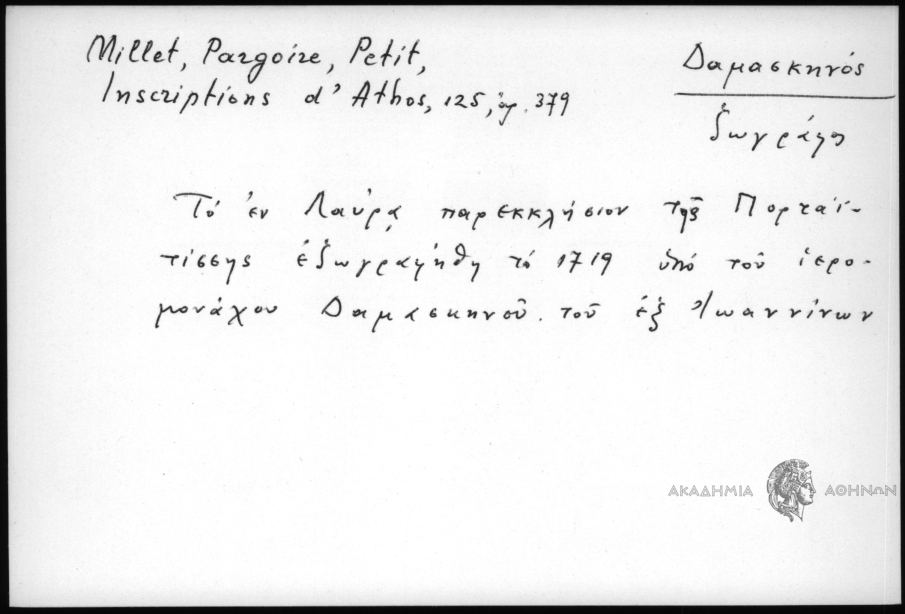 Millet, Pargoire, Petit,
Inscriptions d' Athos, 125, ἀρ. 379
Δαμασκηνός
ζωγράφος
Τό ἐν Λαύρᾳ παρεκκλήσιον τῆς Πορταΐ-
τίσσης ἐζωγραφήθη τό 1719 ὑπό τοῦ ἱερο-
μονάχου Δαμασκηνοῦ τοῦ ἐξ Ἰωαννίνων
ΑΚΑΔΗΜΙΑ ΑΘΗΝΩΝ